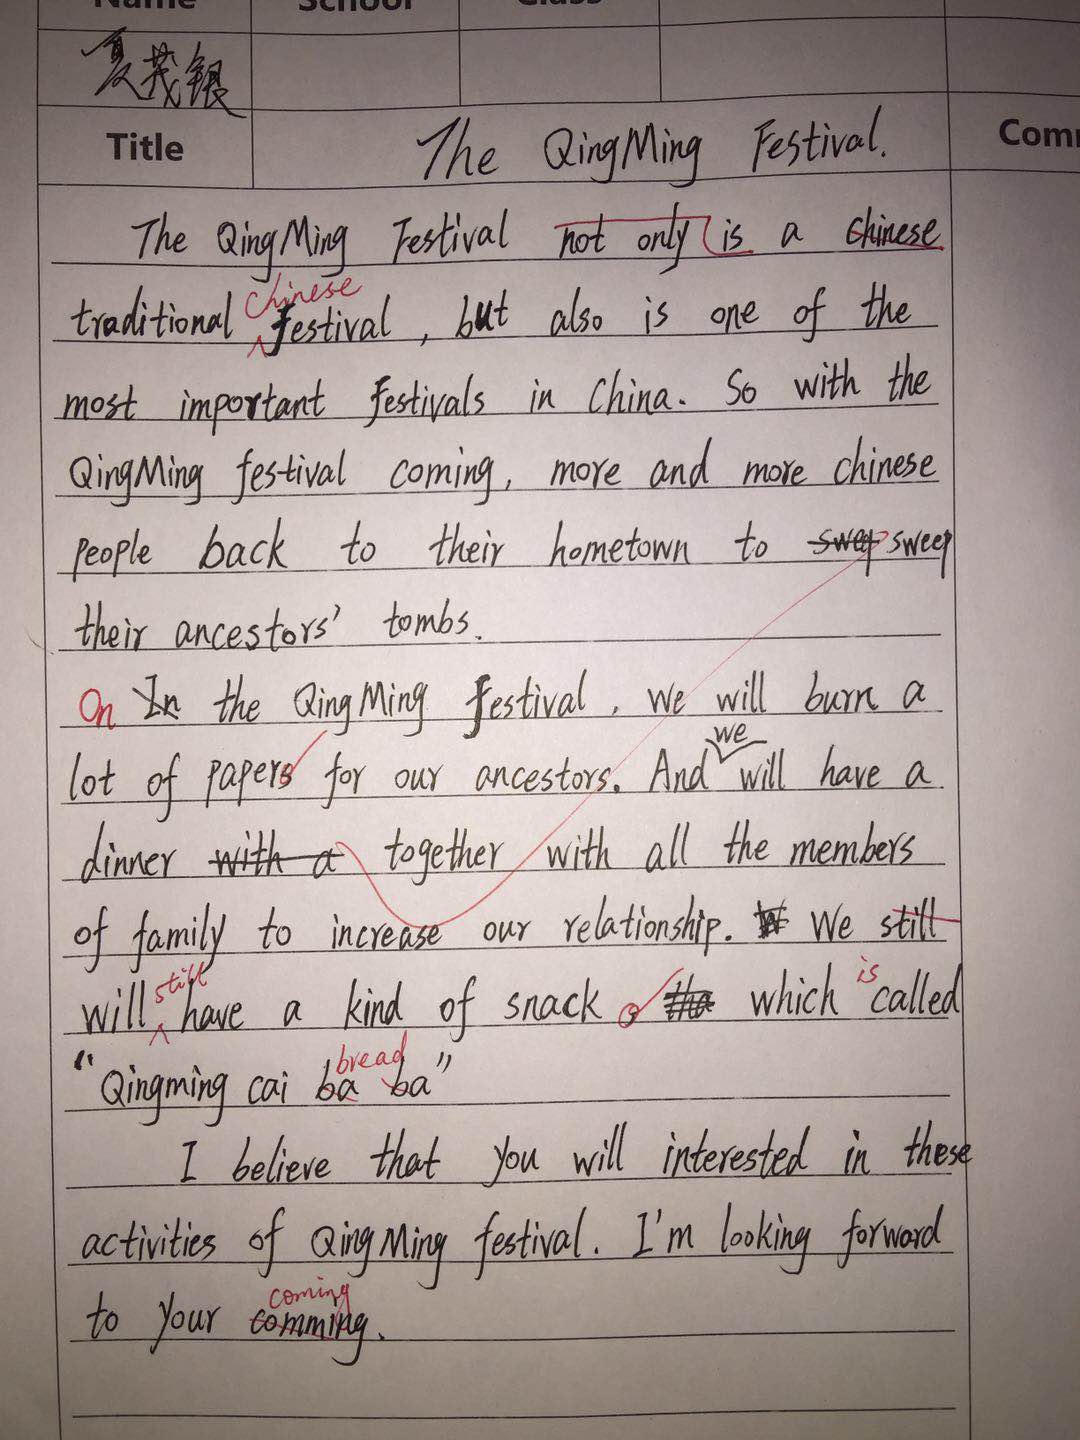 Name School Class
夏茂银
Title The QingMing Festival. Com
The QingMing Festival not only is a chinese
chinese
traditional festival, but also is one of the
most important festivals in China. So with the
QingMing festival coming, more and more chinese
people back to their hometown to swep sweep
their ancestors' tombs.
On In the QingMing festival, we will burn a
we
lot of papers for our ancestors. And will have a
dinner with a together with all the members
of family to increase our relationship. W We still
still is
will have a kind of snack tha which called
bread
"Qingming cai ba ba"
I believe that you will interested in these
activities of QingMing festival. I'm looking forward
coming
to your comming.